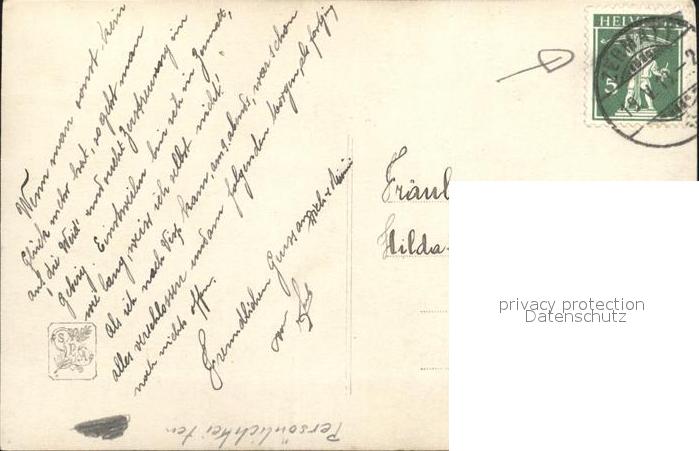 Wenn man sonst kein
Glück mehr hat, so geht man
auf "die Weid" und sucht Zerstreuung im
Gebirg. Einstweilen bin ich in Zermatt,
wie lang, weiss ich selbst nicht!
Als ich nach Visp kam, am 9. abends, war schon
alles verschlossen und am folgenden Morgen, als fortging
noch nichts offen.
Freundlichen Gruss an Dich &
von
Fräul
Hilda
HELVETIA
5
ZERMATT
S.P.A.
Persönlichkeiten
privacy protection
Datenschutz